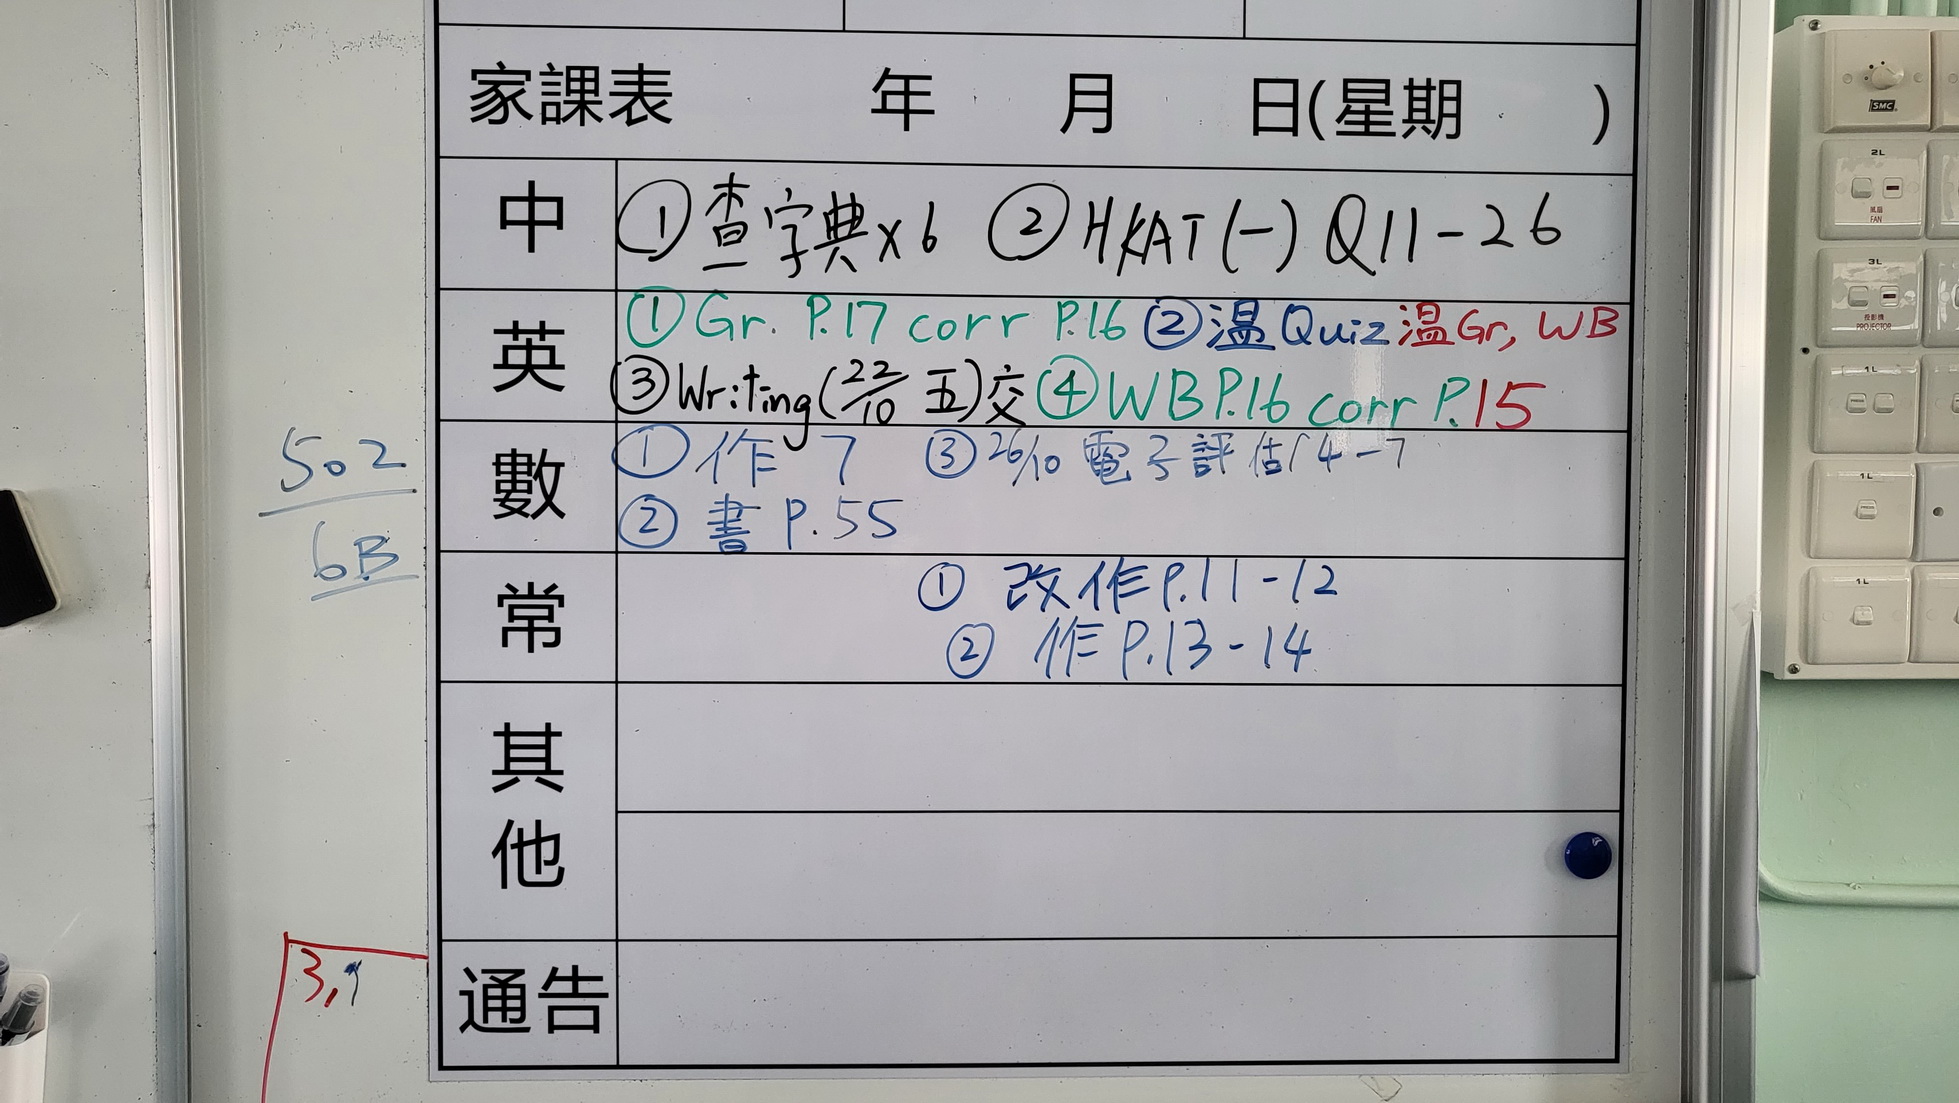 家課表 年 月 日(星期 )
中 ①查字典x6 ②HKAT(一) Q11-26
英 ①Gr. P.17 corr P.16 ②溫Quiz 溫Gr, WB
③Writing(22/10 五)交 ④WB P.16 corr P.15
數 ①作 7 ③26/10 電子評估(4-7
②書 P.55
常 ① 改作P.11-12
② 作P.13-14
其他
通告
502
6B
3,9
SMC
2L
風扇
FAN
3L
投影機
PROJECTOR
1L
1L
1L